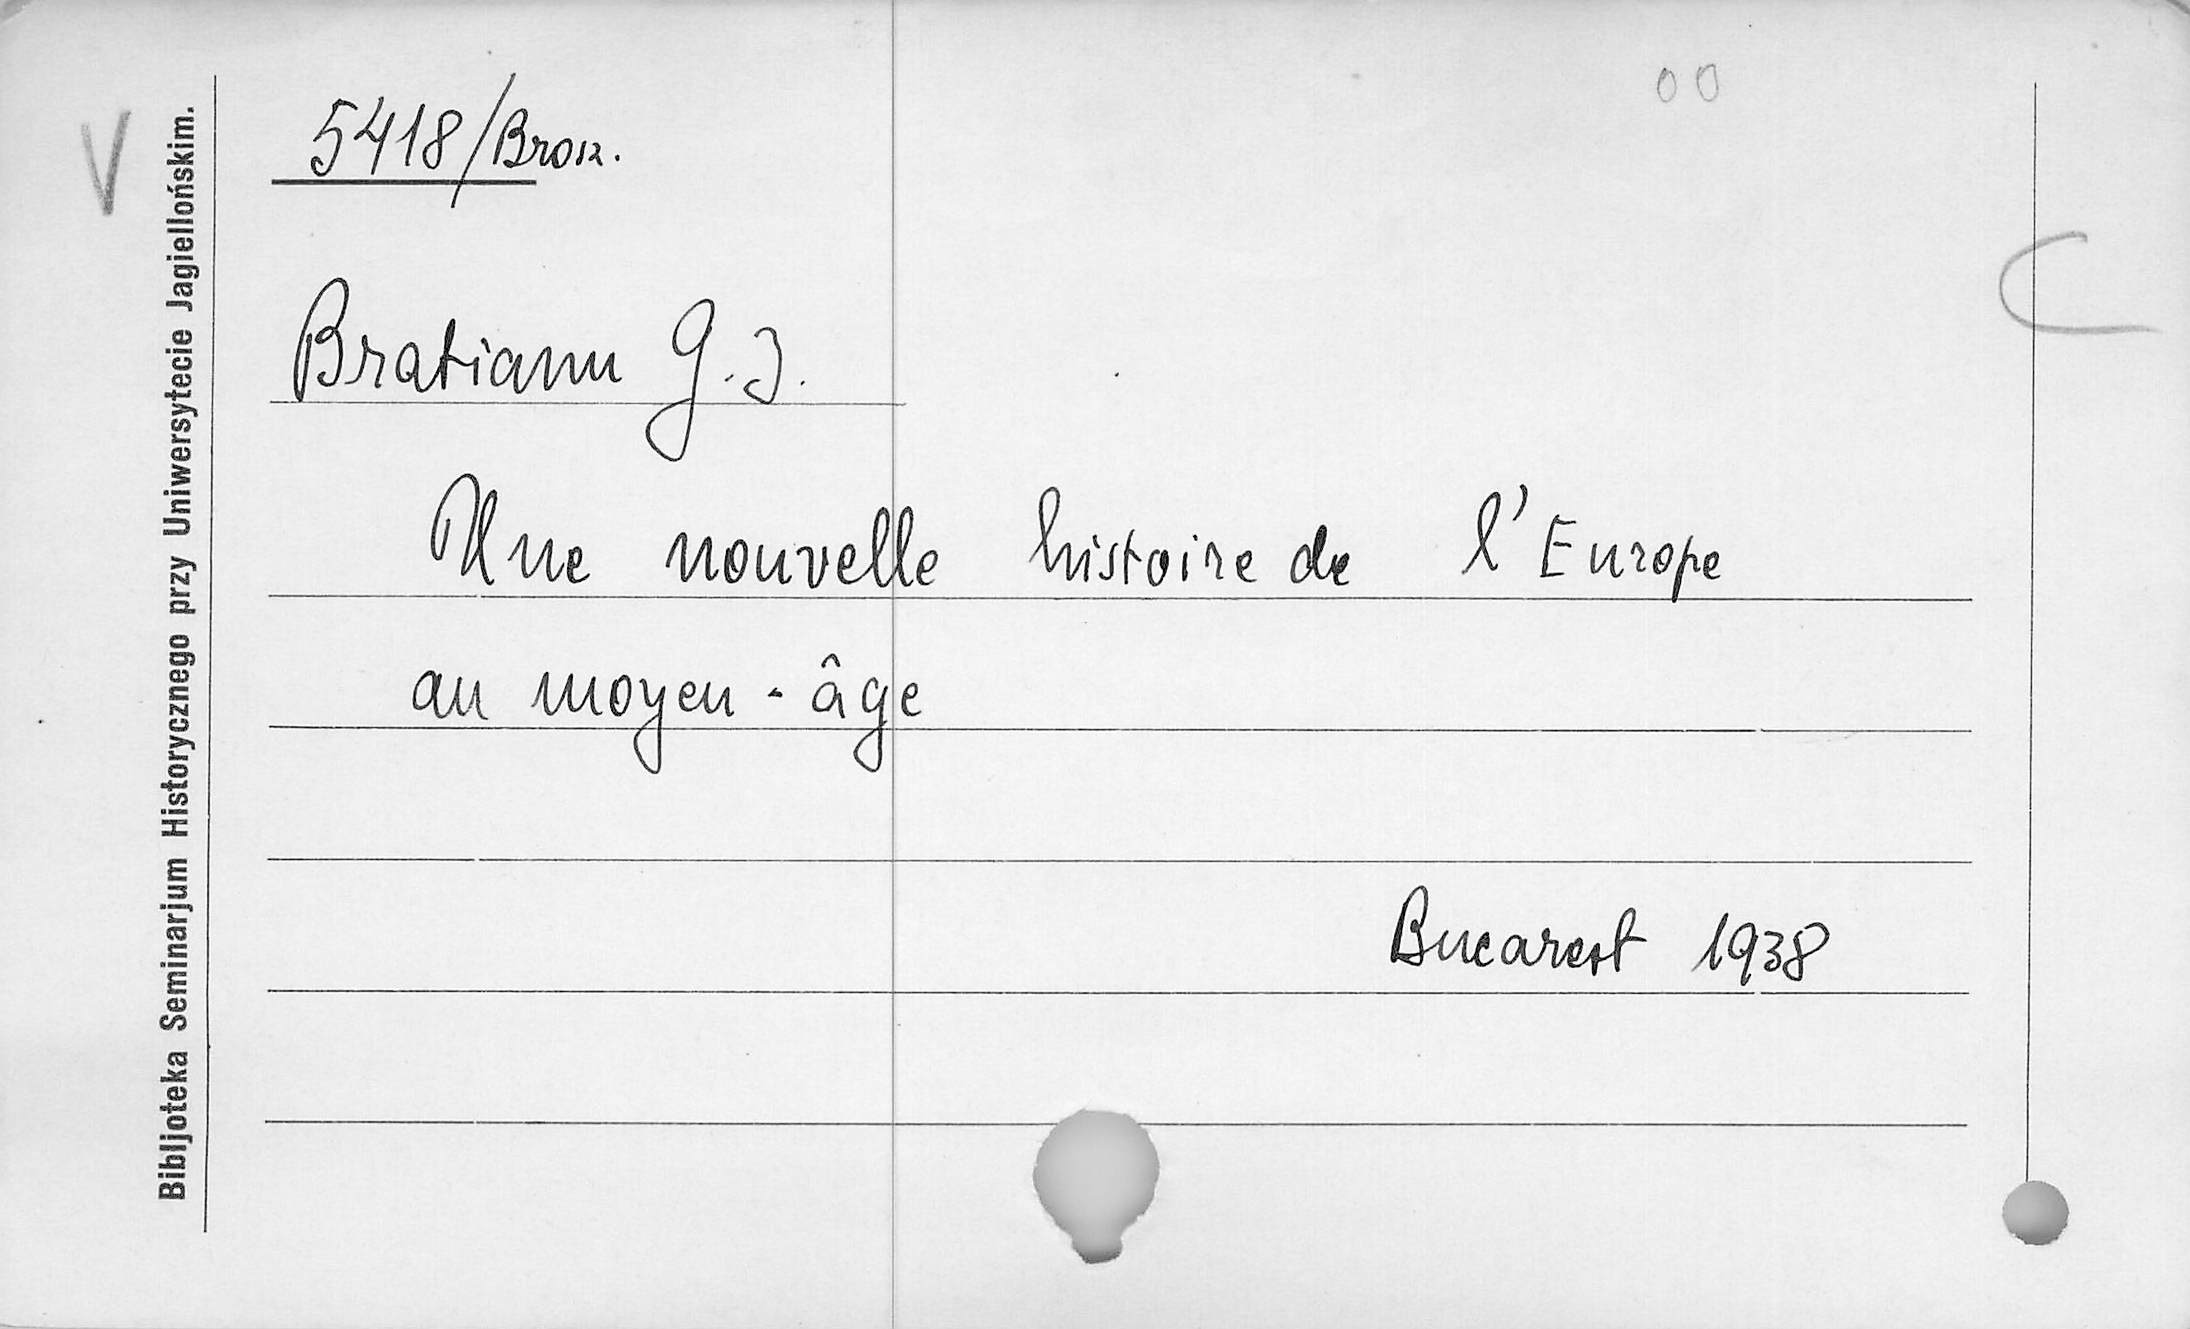 5418/Brosz.
00
V
Bibljoteka Seminarjum Historycznego przy Uniwersytecie Jagiellońskim.
Bratianu G. J.
C
Une nouvelle histoire de l'Europe
au moyen-âge
Bucarest 1938